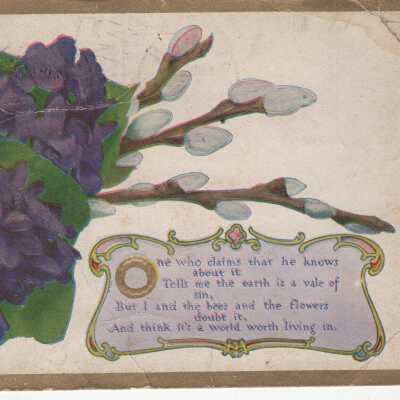 One who claims that he knows
about it
Tells me the earth is a vale of
sin,
But I and the bees and the flowers
doubt it,
And think it's a world worth living in.